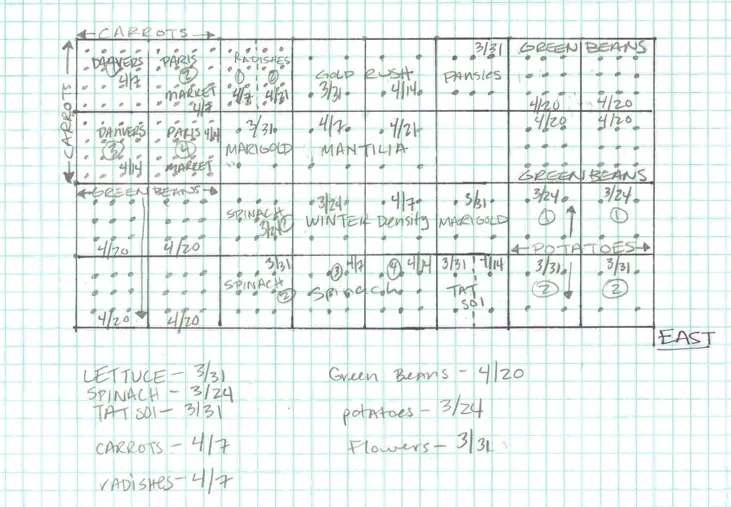 CARROTS
CARROTS
DANVERS 1 4/7
PARIS 2 MARKET 4/7
RADISHES 1 2 4/7 4/21
GOLD RUSH 3/31 4/14
3/31 PANSIES
GREEN BEANS 4/20 4/20
DANVERS 3 4/14
PARIS 4/14 4 MARKET
3/31 MARIGOLD
4/7 4/21 MANTILIA
4/20 4/20 GREEN BEANS
GREEN BEANS 4/20 4/20
SPINACH 3/24 1
3/24 4/7 WINTER Density
3/31 MARIGOLD
3/24 3/24 1 1
POTATOES
4/20 4/20
3/31 SPINACH 2
3 4/7 4 4/14 Spinach
3/31 4/14 TAT SOI
3/31 3/31 2 2
EAST
LETTUCE - 3/31
SPINACH - 3/24
TAT SOI - 3/31
CARROTS - 4/7
radishes - 4/7
Green Beans - 4/20
potatoes - 3/24
Flowers - 3/31